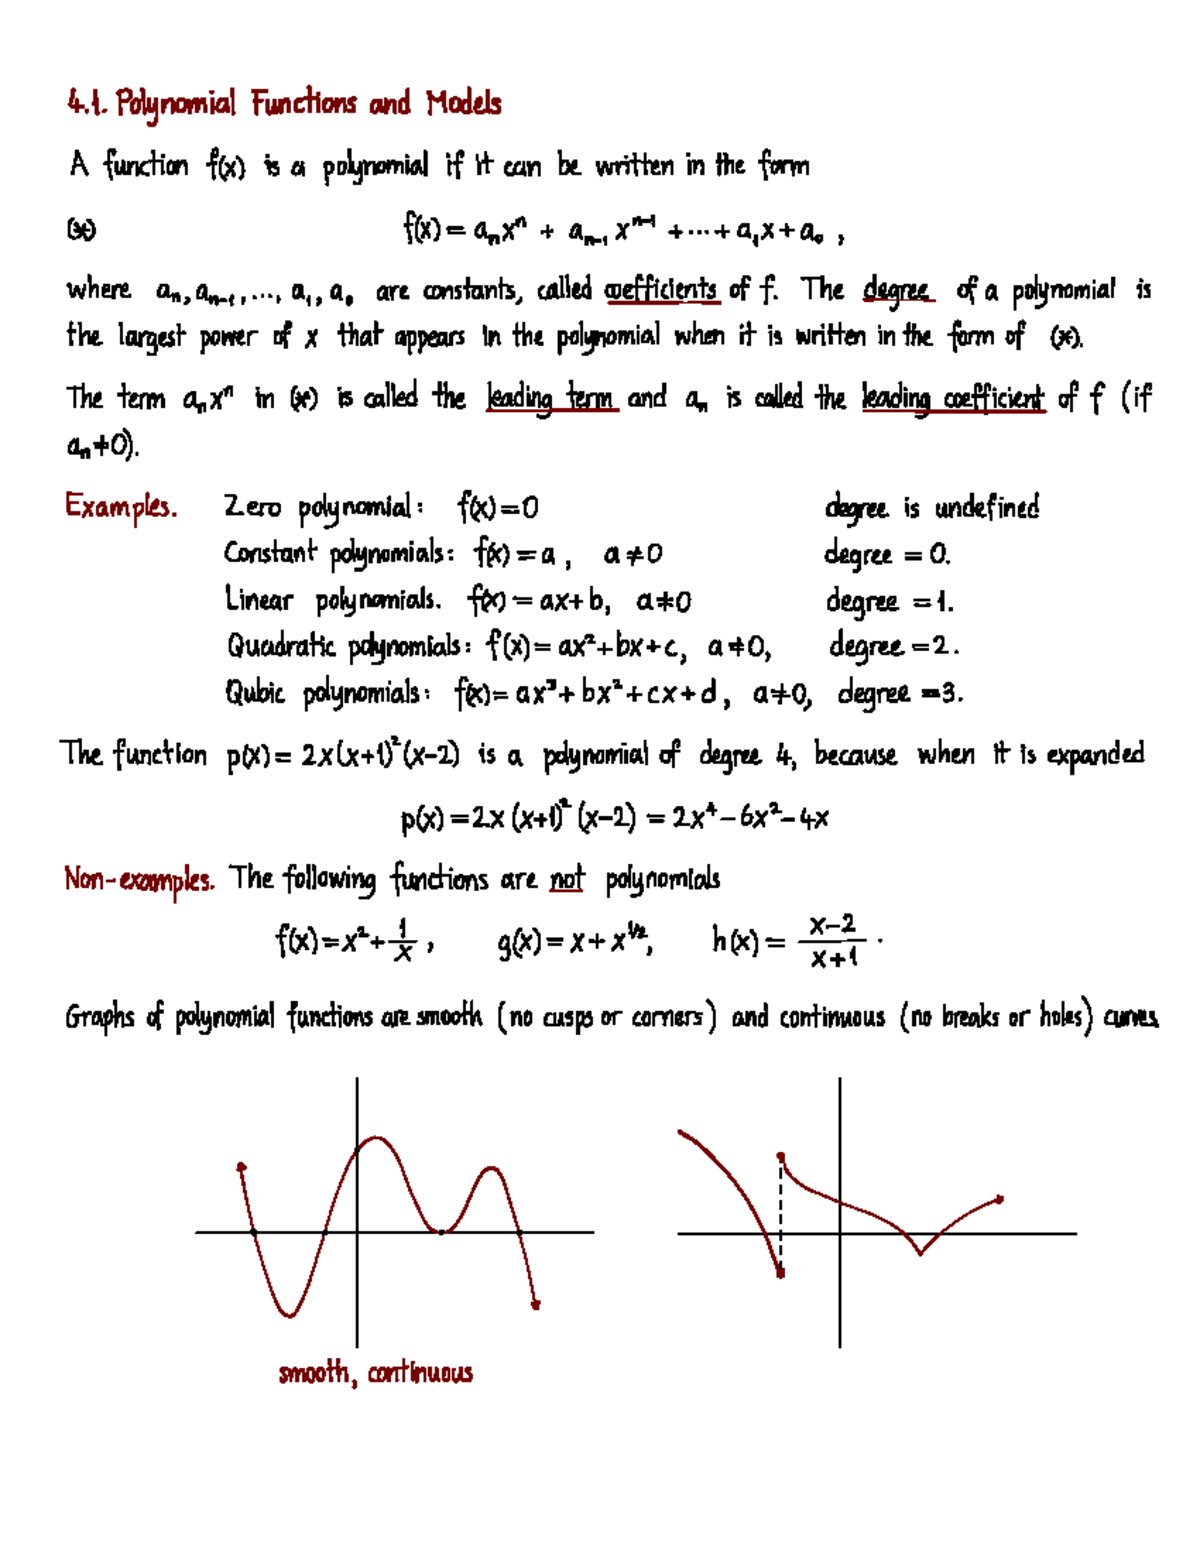 4.1. Polynomial Functions and Models
A function f(x) is a polynomial if it can be written in the form
(*) f(x) = aₙxⁿ + aₙ₋₁ xⁿ⁻¹ + ⋯ + a₁x + a₀ ,
where aₙ, aₙ₋₁, ..., a₁, a₀ are constants, called coefficients of f. The degree of a polynomial is
the largest power of x that appears in the polynomial when it is written in the form of (*).
The term aₙxⁿ in (*) is called the leading term and aₙ is called the leading coefficient of f (if
aₙ≠0).
Examples. Zero polynomial: f(x)=0 degree is undefined
Constant polynomials: f(x) = a , a≠0 degree = 0.
Linear polynomials. f(x) = ax+b, a≠0 degree = 1.
Quadratic polynomials: f(x)= ax²+bx+c, a≠0, degree = 2.
Qubic polynomials: f(x)= ax³+bx²+cx+d, a≠0, degree = 3.
The function p(x)= 2x(x+1)²(x-2) is a polynomial of degree 4, because when it is expanded
p(x) = 2x (x+1)² (x-2) = 2x⁴ - 6x² - 4x
Non-examples. The following functions are not polynomials
f(x)=x²+1/x , g(x)= x + x^1/2, h(x) = x-2/x+1 .
Graphs of polynomial functions are smooth (no cusps or corners) and continuous (no breaks or holes) curves.
smooth, continuous